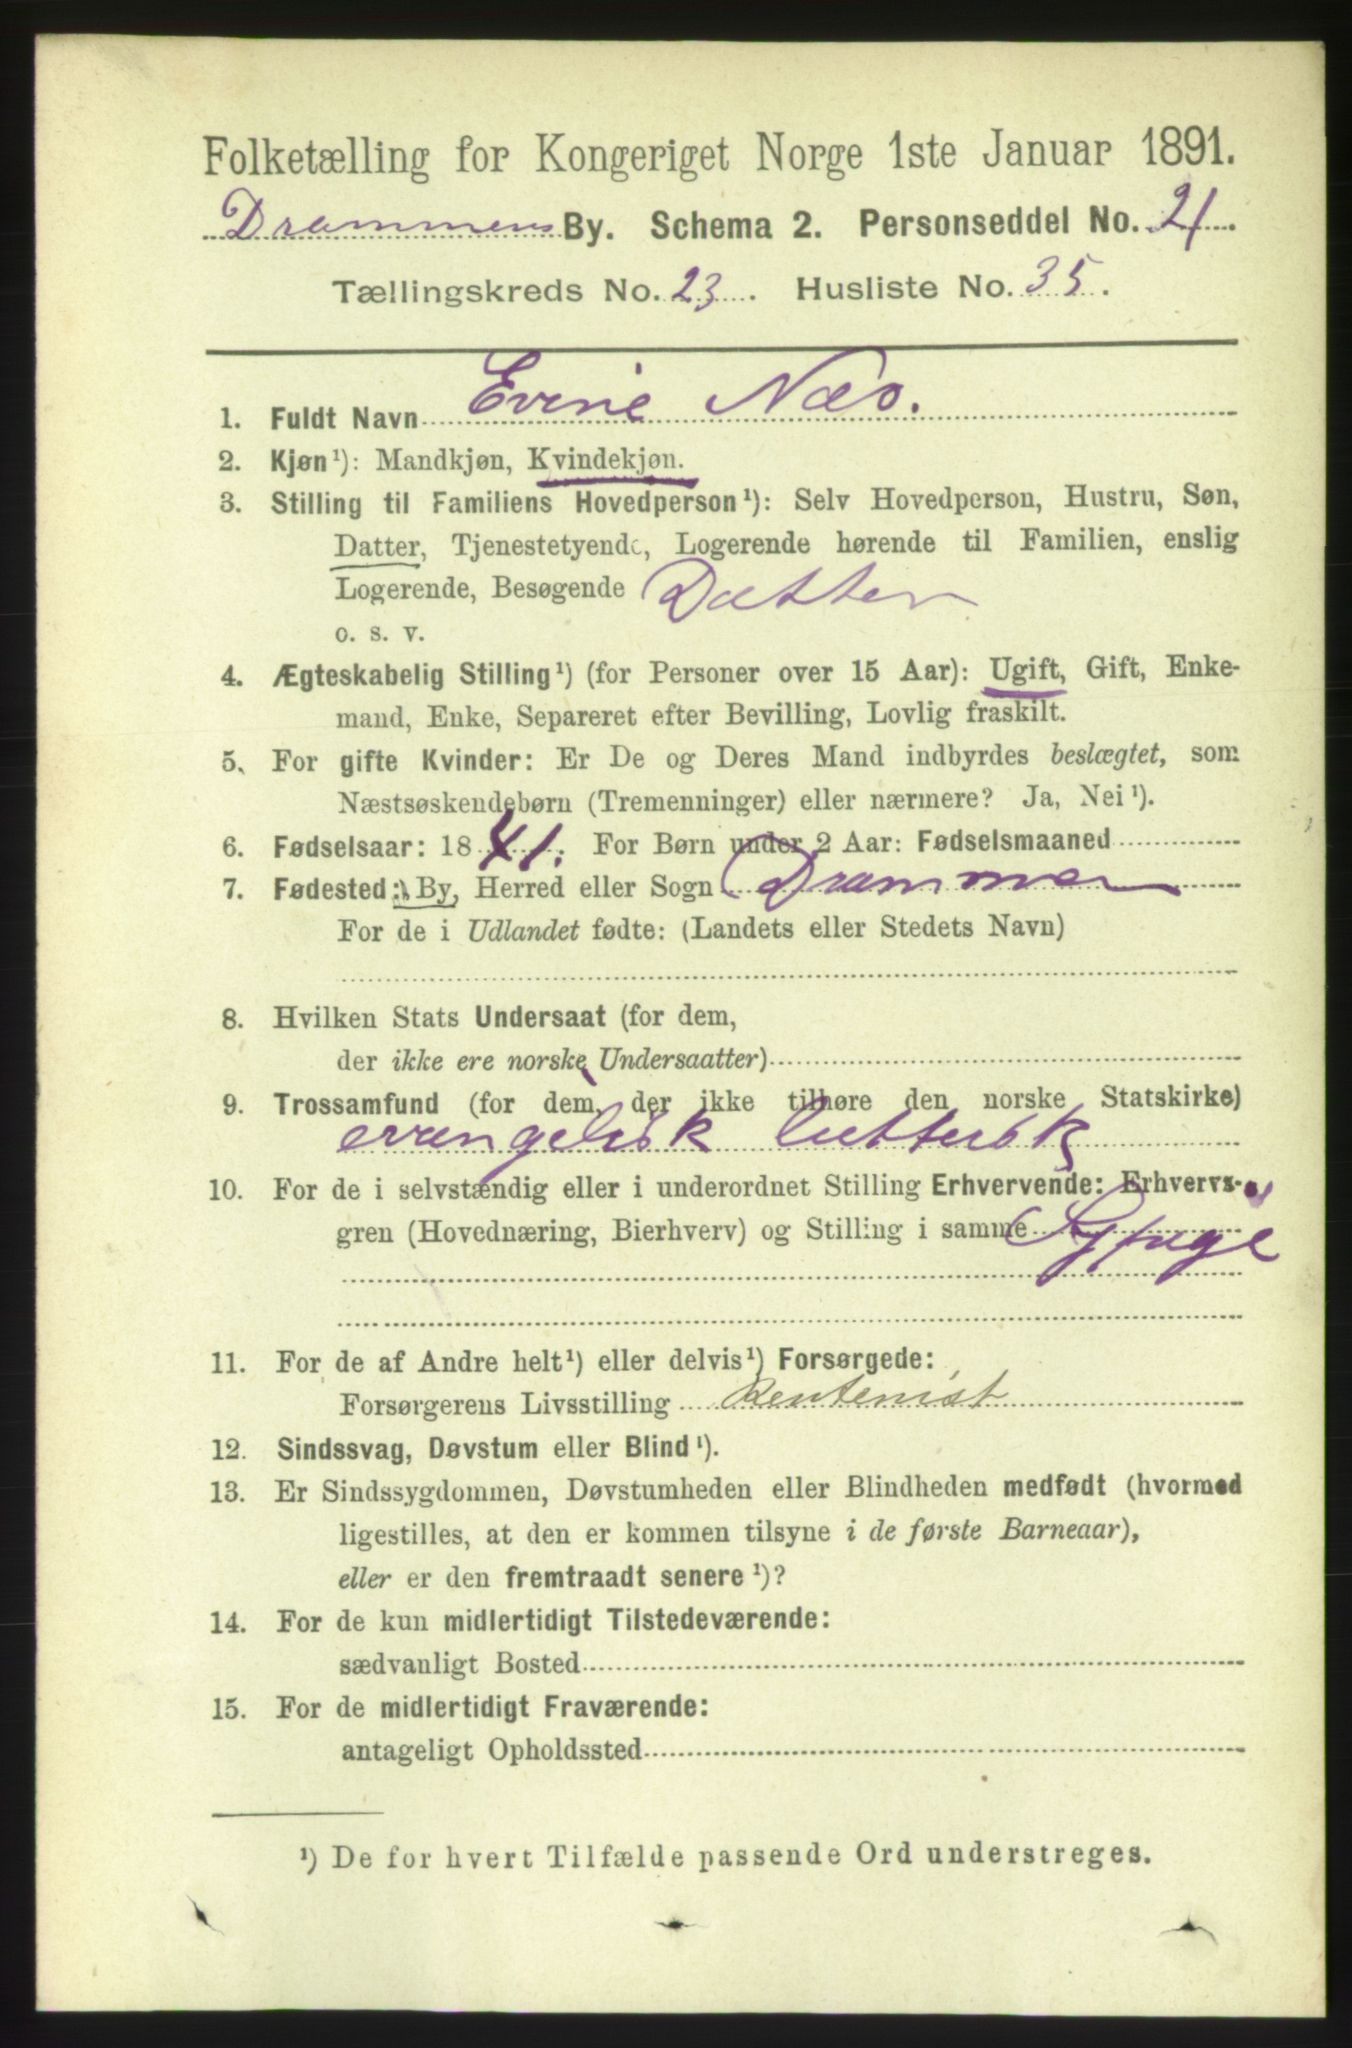 Folketælling for Kongeriget Norge 1ste Januar 1891.
Drammens By. Schema 2. Personseddel No. 21.
Tællingskreds No. 23. Husliste No. 35.
1. Fuldt Navn Evine Næs.
2. Kjøn¹): Mandkjøn, Kvindekjøn.
3. Stilling til Familiens Hovedperson¹): Selv Hovedperson, Hustru, Søn,
Datter, Tjenestetyende, Logerende hørende til Familien, enslig
Logerende, Besøgende Datter
o. s. v.
4. Ægteskabelig Stilling¹) (for Personer over 15 Aar): Ugift, Gift, Enke-
mand, Enke, Separeret efter Bevilling, Lovlig fraskilt.
5. For gifte Kvinder: Er De og Deres Mand indbyrdes beslægtet, som
Næstsøskendebørn (Tremenninger) eller nærmere? Ja, Nei¹).
6. Fødselsaar: 1841. For Børn under 2 Aar: Fødselsmaaned
7. Fødested: By, Herred eller Sogn Drammen
For de i Udlandet fødte: (Landets eller Stedets Navn)
8. Hvilken Stats Undersaat (for dem,
der ikke ere norske Undersaatter)
9. Trossamfund (for dem, der ikke tilhøre den norske Statskirke)
evangelisk luttersk
10. For de i selvstændig eller i underordnet Stilling Erhvervende: Erhvervs-
gren (Hovednæring, Bierhverv) og Stilling i samme Sypige
11. For de af Andre helt¹) eller delvis¹) Forsørgede:
Forsørgerens Livsstilling Rentenist
12. Sindssvag, Døvstum eller Blind¹).
13. Er Sindssygdommen, Døvstumheden eller Blindheden medfødt (hvormed
ligestilles, at den er kommen tilsyne i de første Barneaar),
eller er den fremtraadt senere¹)?
14. For de kun midlertidigt Tilstedeværende:
sædvanligt Bosted
15. For de midlertidigt Fraværende:
antageligt Opholdssted
¹) De for hvert Tilfælde passende Ord understreges.